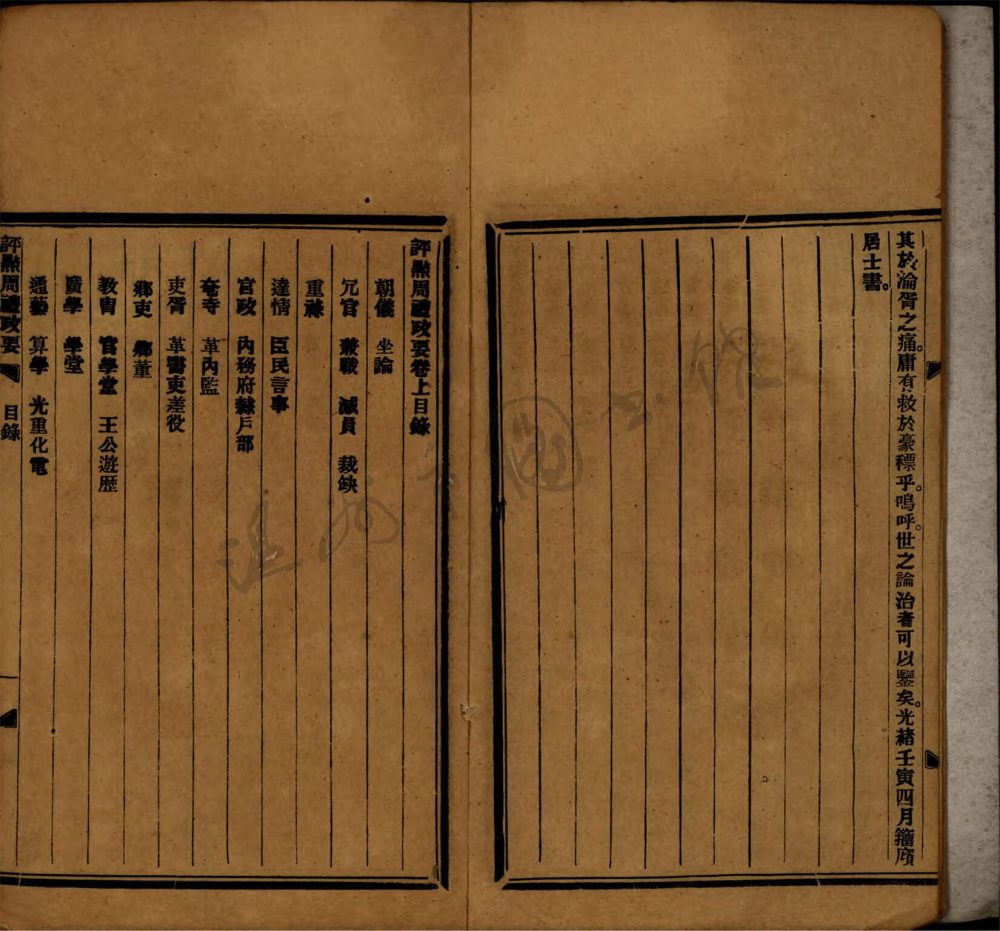 其於淪胥之痛庸有救於豪穤乎。嗚呼。世之論治者可以鑒矣。光緒壬寅四月籀廎
居士書。
評點周禮政要卷上目錄
朝儀 坐論
冗官 兼職 減員 裁缺
重祿
達情 臣民言事
官政 內務府隸戶部
奄寺 革內監
吏胥 革書吏差役
鄉吏 鄉董
教胄 官學堂 王公遊歷
廣學 學堂
通藝 算學 光重化電
評點周禮政要 目錄 一